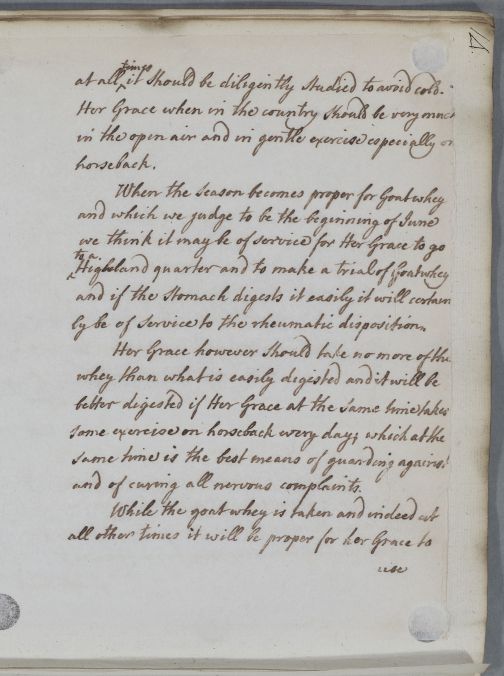 14
at all times it should be diligently studied to avoid cold.
Her Grace when in the country should be very much
in the open air and in gentle exercise especially on
horseback.
When the season becomes proper for Goat whey
and which we judge to be the beginning of June
we think it may be of service for Her Grace to go
to a Highland quarter and to make a trial of Goat whey
and if the Stomach digests it easily it will certain
ly be of Service to the rheumatic disposition.
Her Grace however should take no more of the
whey than what is easily digested and it will be
better digested if Her Grace at the same time takes
some exercise on horseback every day; which at the
same time is the best means of guarding against
and of curing all nervous complaints.
While the goat whey is taken and indeed at
all other times it will be proper for her Grace to
use